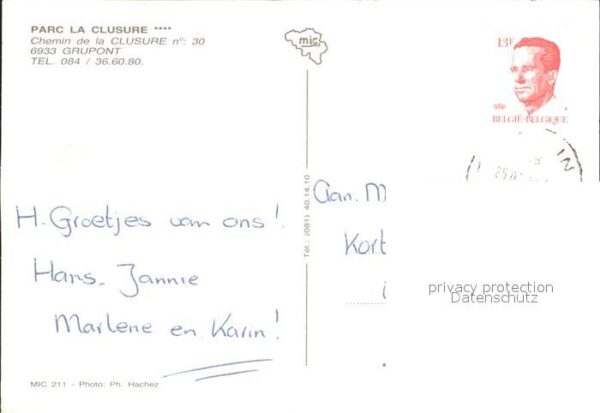 PARC LA CLUSURE ****
Chemin de la CLUSURE nº: 30
6933 GRUPONT
TEL. 084 / 36.60.80.
mic
13F
BELGIË-BELGIQUE
H. Groetjes van ons!
Hans. Jannie
Marlene en Karin!
Tél. (081) 40.14.10
Aan. M
Kort
privacy protection
Datenschutz
MIC 211 - Photo: Ph. Hachez